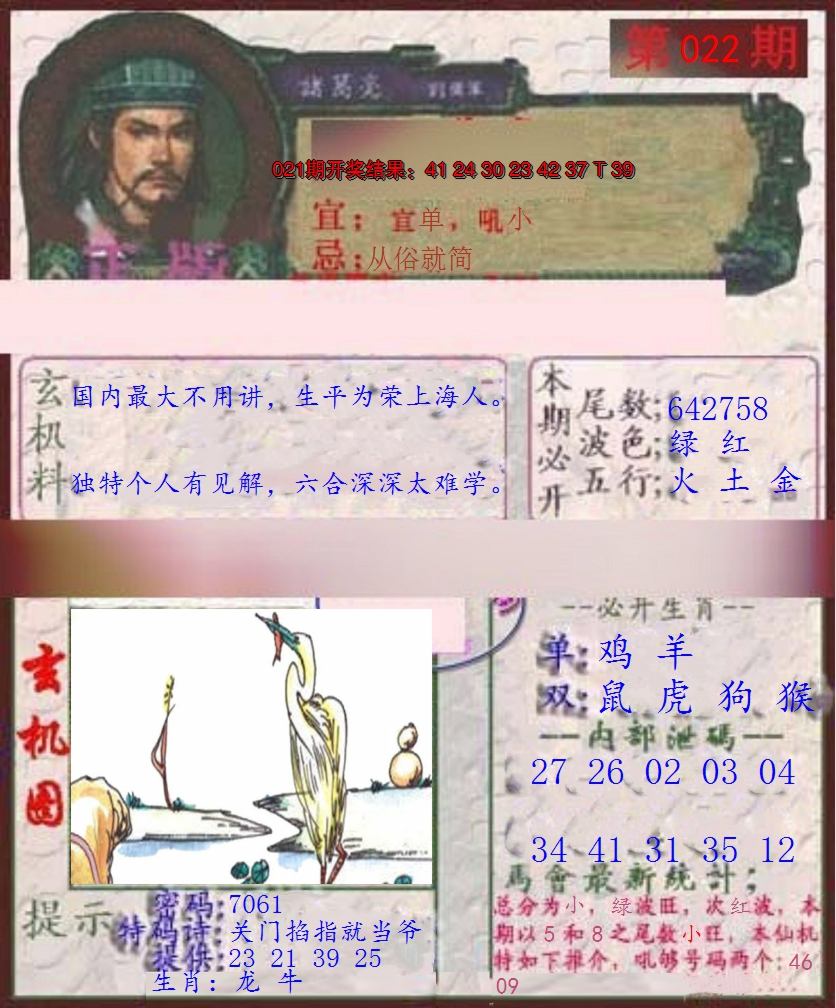 第 022 期
諸葛亮
021期开奖结果：41 24 30 23 42 37 T 39
宜；宜单，吼小
忌；从俗就简
正版
玄机料
国内最大不用讲，生平为荣上海人。
独特个人有见解，六合深深太难学。
本期必开
尾数;642758
波色;绿 红
五行;火 土 金
玄机图
--必开生肖--
单:鸡 羊
双:鼠 虎 狗 猴
--内部泄碼--
27 26 02 03 04
34 41 31 35 12
馬會最新統計；
总分为小，绿波旺，次红波，本
期以5和8之尾数小旺，本仙机
特如下推介，吼够号码两个:46
09
提示
密码:7061
特码诗:关门掐指就当爷
提供:23 21 39 25
生肖：龙 牛